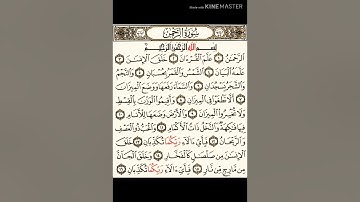 Made with KINEMASTER
سُورَةُ الرَّحْمٰن
بِسْمِ اللَّهِ الرَّحْمَٰنِ الرَّحِيمِ
الرَّحْمَٰنُ ١ عَلَّمَ الْقُرْءَانَ ٢ خَلَقَ الْإِنسَٰنَ ٣
عَلَّمَهُ الْبَيَانَ ٤ الشَّمْسُ وَالْقَمَرُ بِحُسْبَانٍ ٥ وَالنَّجْمُ
وَالشَّجَرُ يَسْجُدَانِ ٦ وَالسَّمَاءَ رَفَعَهَا وَوَضَعَ الْمِيزَانَ
٧ أَلَّا تَطْغَوْا فِي الْمِيزَانِ ٨ وَأَقِيمُوا الْوَزْنَ بِالْقِسْطِ
وَلَا تُخْسِرُوا الْمِيزَانَ ٩ وَالْأَرْضَ وَضَعَهَا لِلْأَنَامِ ١٠
فِيهَا فَٰكِهَةٌ وَالنَّخْلُ ذَاتُ الْأَكْمَامِ ١١ وَالْحَبُّ ذُو الْعَصْفِ
وَالرَّيْحَانُ ١٢ فَبِأَيِّ ءَالَاءِ رَبِّكُمَا تُكَذِّبَانِ ١٣ خَلَقَ
الْإِنسَٰنَ مِن صَلْصَٰلٍ كَالْفَخَّارِ ١٤ وَخَلَقَ الْجَانَّ
مِن مَّارِجٍ مِّن نَّارٍ ١٥ فَبِأَيِّ ءَالَاءِ رَبِّكُمَا تُكَذِّبَانِ ١٦